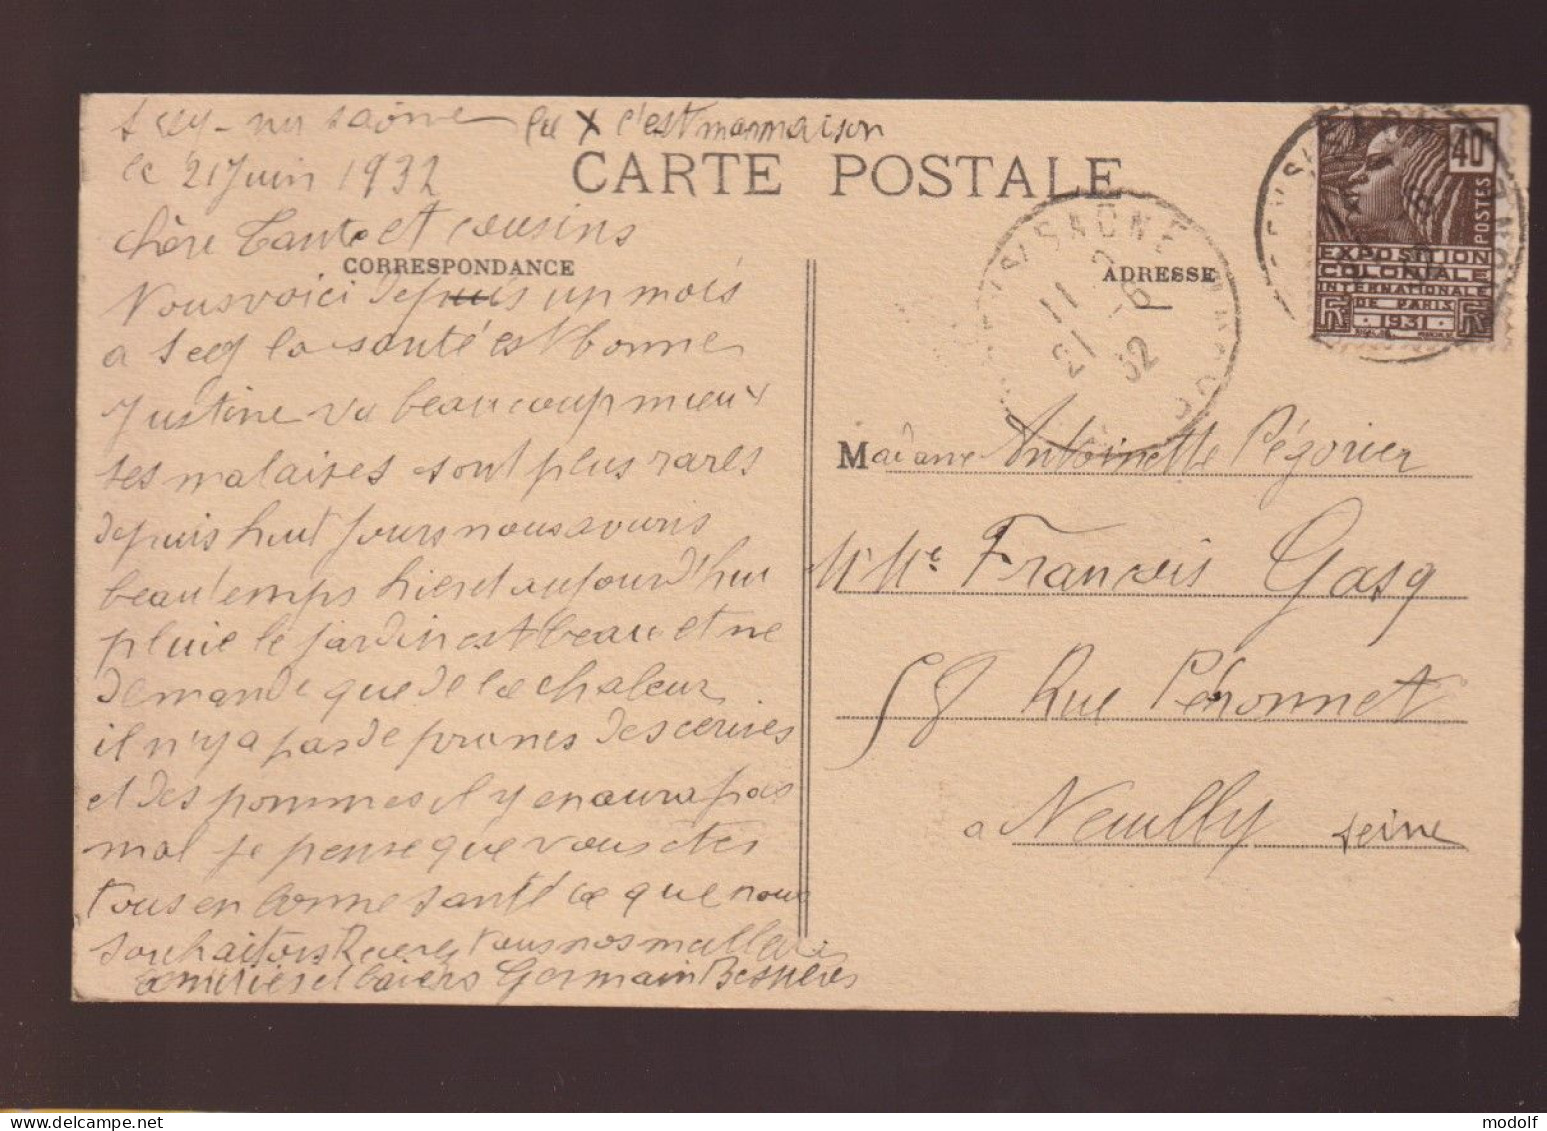 Scey-sur saône la X c'est ma maison
le 21 Juin 1932
CARTE POSTALE
chère Tante et cousins
CORRESPONDANCE
Nous voici depuis un mois
a Scey la santé est bonne
Justine va beaucoup mieux
ses malaises sont plus rares
depuis huit jours nous avons
beau temps hier et aujourd'hui
pluie le jardin est beau et ne
demande que de la chaleur
il n'y a pas de prunes des cerises
et des pommes il y en aura pas
mal je pense que vous êtes
tous en bonne santé ce que nous
souhaitons Recevez tous nos meilleurs
amitiés et baisers Germain Besnières
ADRESSE
S/ SAÔNE
11
21 -6
32
40c
POSTES
EXPOSITION
COLONIALE
INTERNATIONALE
DE PARIS
RF · 1931 · RF
Madame Antoinette Pégorier
Mr Me François Gasq
58 Rue Péronnet
a Neuilly seine
modolf